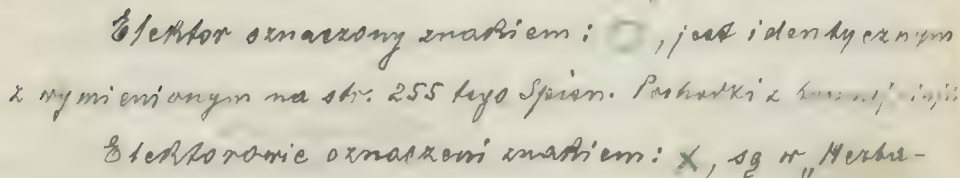 Elektor oznaczony znakiem: ○, jest identycznym
z wymienionym na str. 255 tego Spisu. Pochodki z
Elektorowie oznaczeni znakiem: x, są w „Herba-